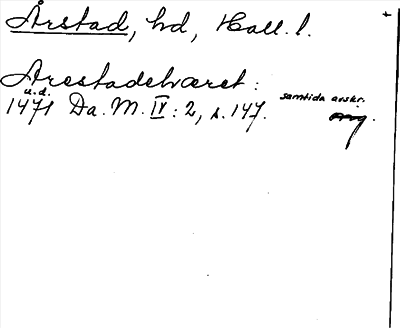 Årstad, hd, Hall. l.
Arestadehæret:
u.d. samtida avskr.
1471 Da. M. IV: 2, s. 147.